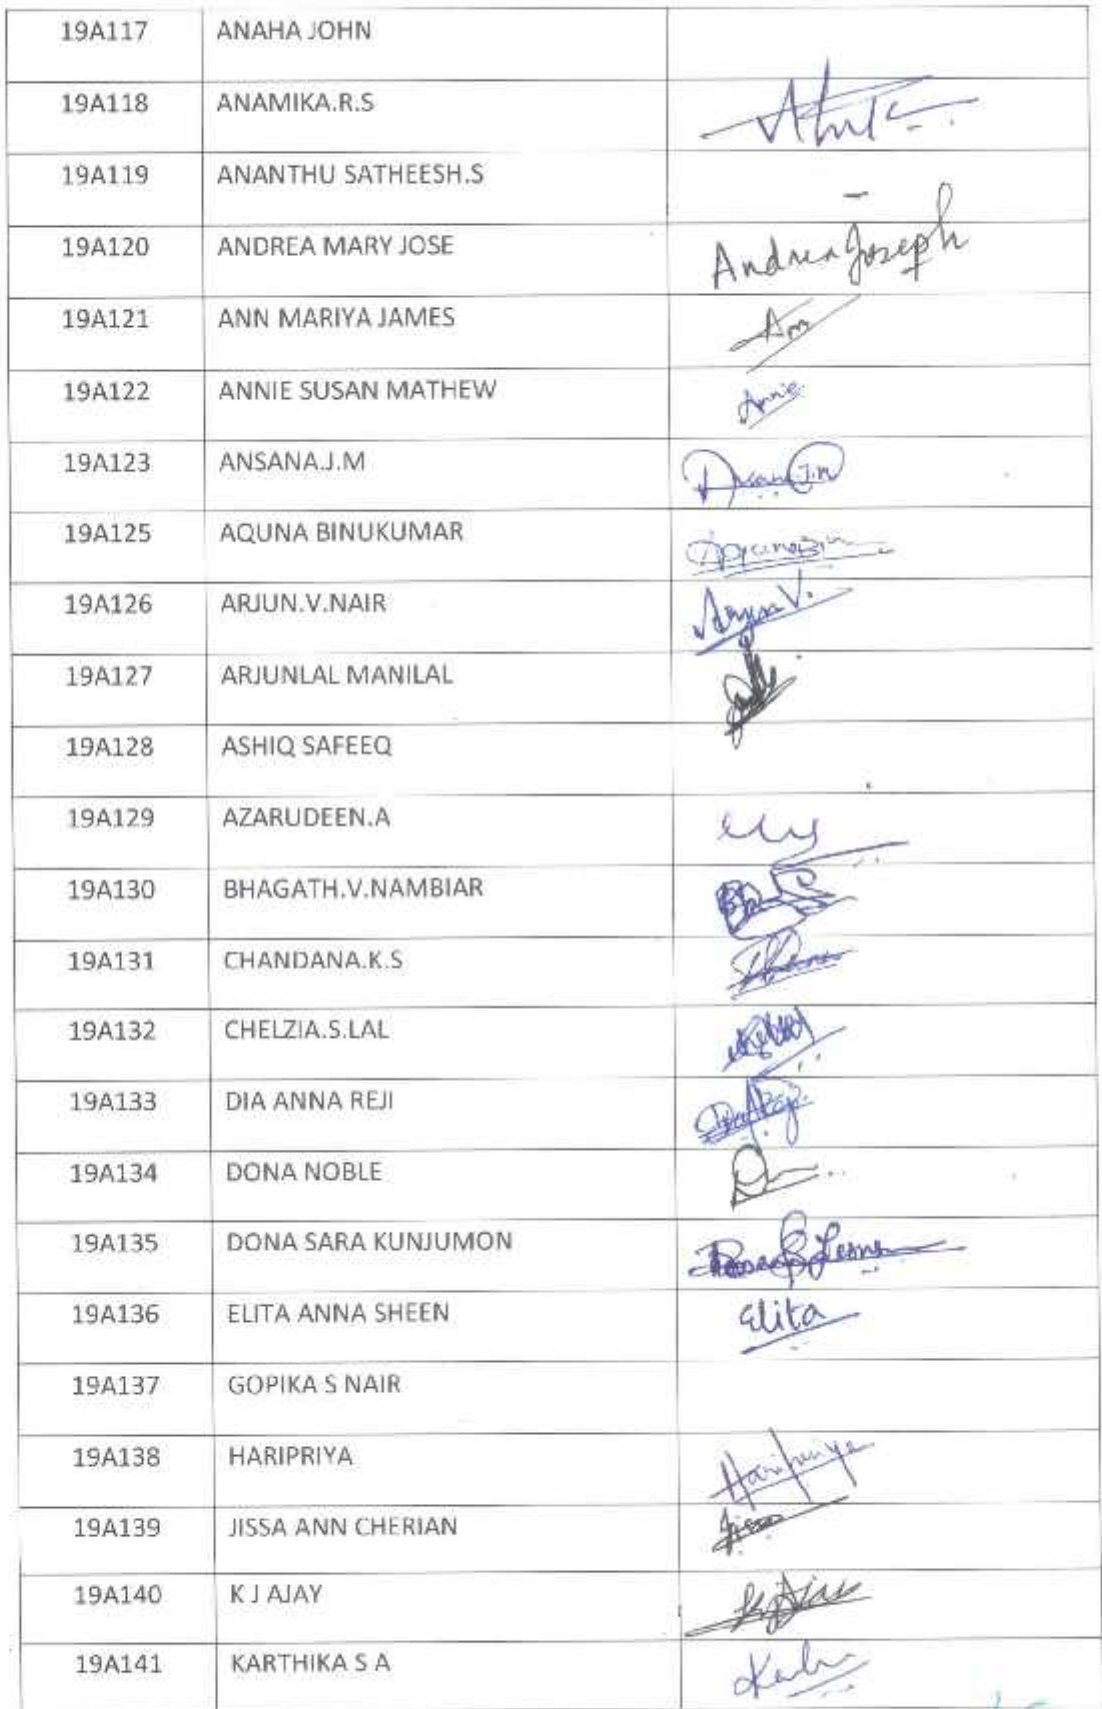 19A117 ANAHA JOHN
19A118 ANAMIKA.R.S
19A119 ANANTHU SATHEESH.S -
19A120 ANDREA MARY JOSE Andrea Joseph
19A121 ANN MARIYA JAMES Ann
19A122 ANNIE SUSAN MATHEW Annie
19A123 ANSANA.J.M J.M
19A125 AQUNA BINUKUMAR
19A126 ARJUN.V.NAIR Arjun V.
19A127 ARJUNLAL MANILAL
19A128 ASHIQ SAFEEQ
19A129 AZARUDEEN.A
19A130 BHAGATH.V.NAMBIAR
19A131 CHANDANA.K.S
19A132 CHELZIA.S.LAL
19A133 DIA ANNA REJI
19A134 DONA NOBLE
19A135 DONA SARA KUNJUMON
19A136 ELITA ANNA SHEEN Elita
19A137 GOPIKA S NAIR
19A138 HARIPRIYA Haripriya
19A139 JISSA ANN CHERIAN Jissa
19A140 K J AJAY
19A141 KARTHIKA S A